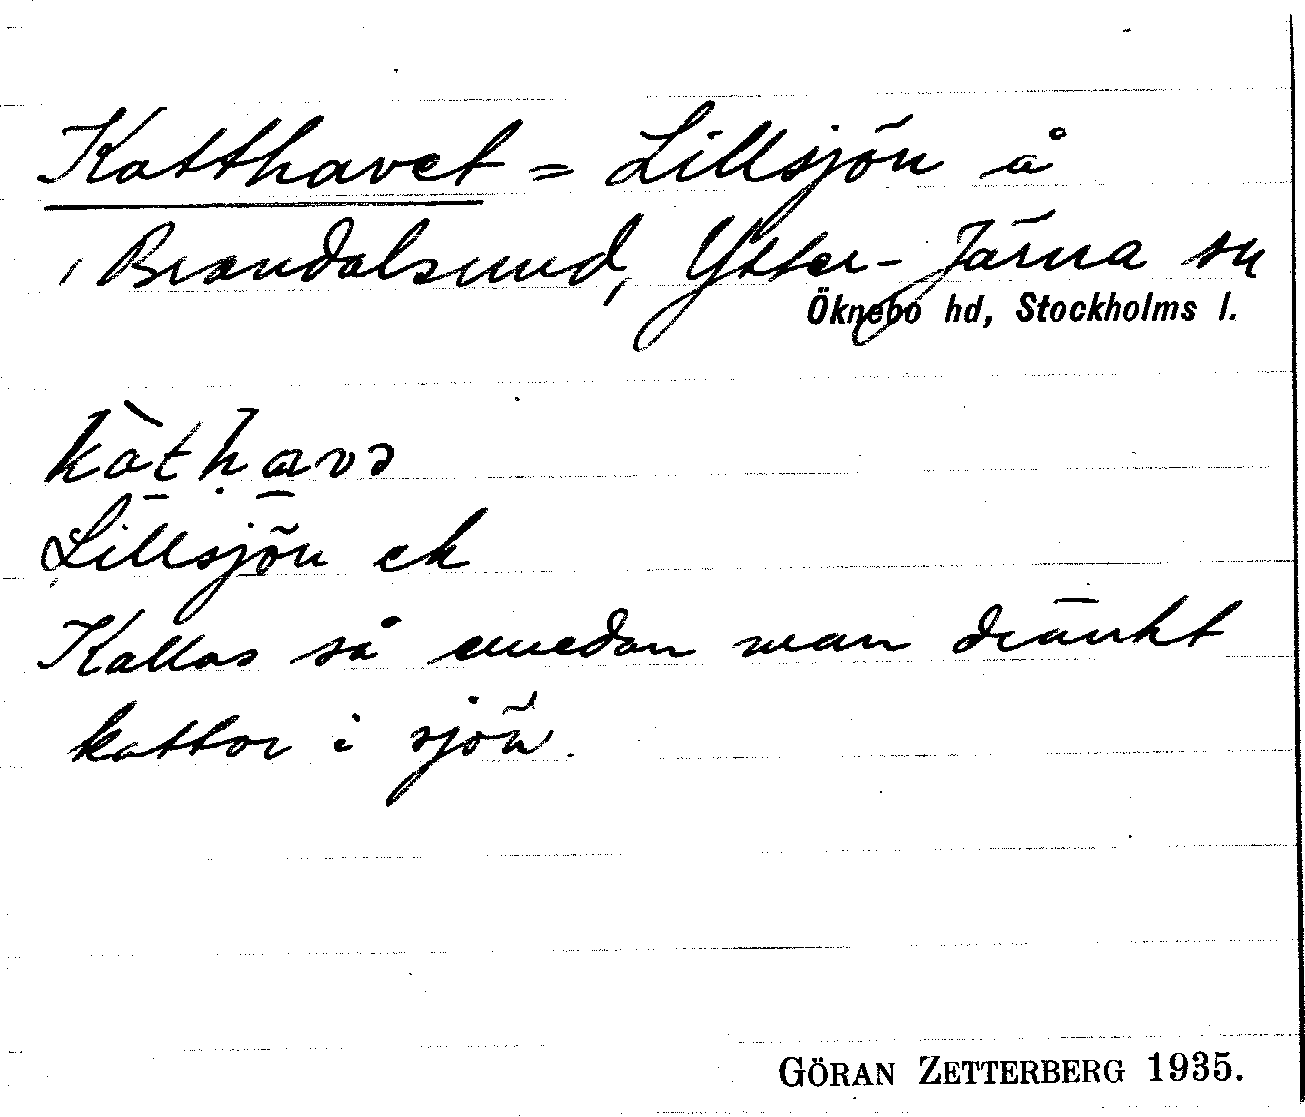 Katthavet = Lillsjön å
Brandalsund, Ytter-Järna sn
Öknebo hd, Stockholms l.
kàthavə
Lillsjön ek
Kallas så emedan man dränkt
kattor i sjön.
GÖRAN ZETTERBERG 1935.